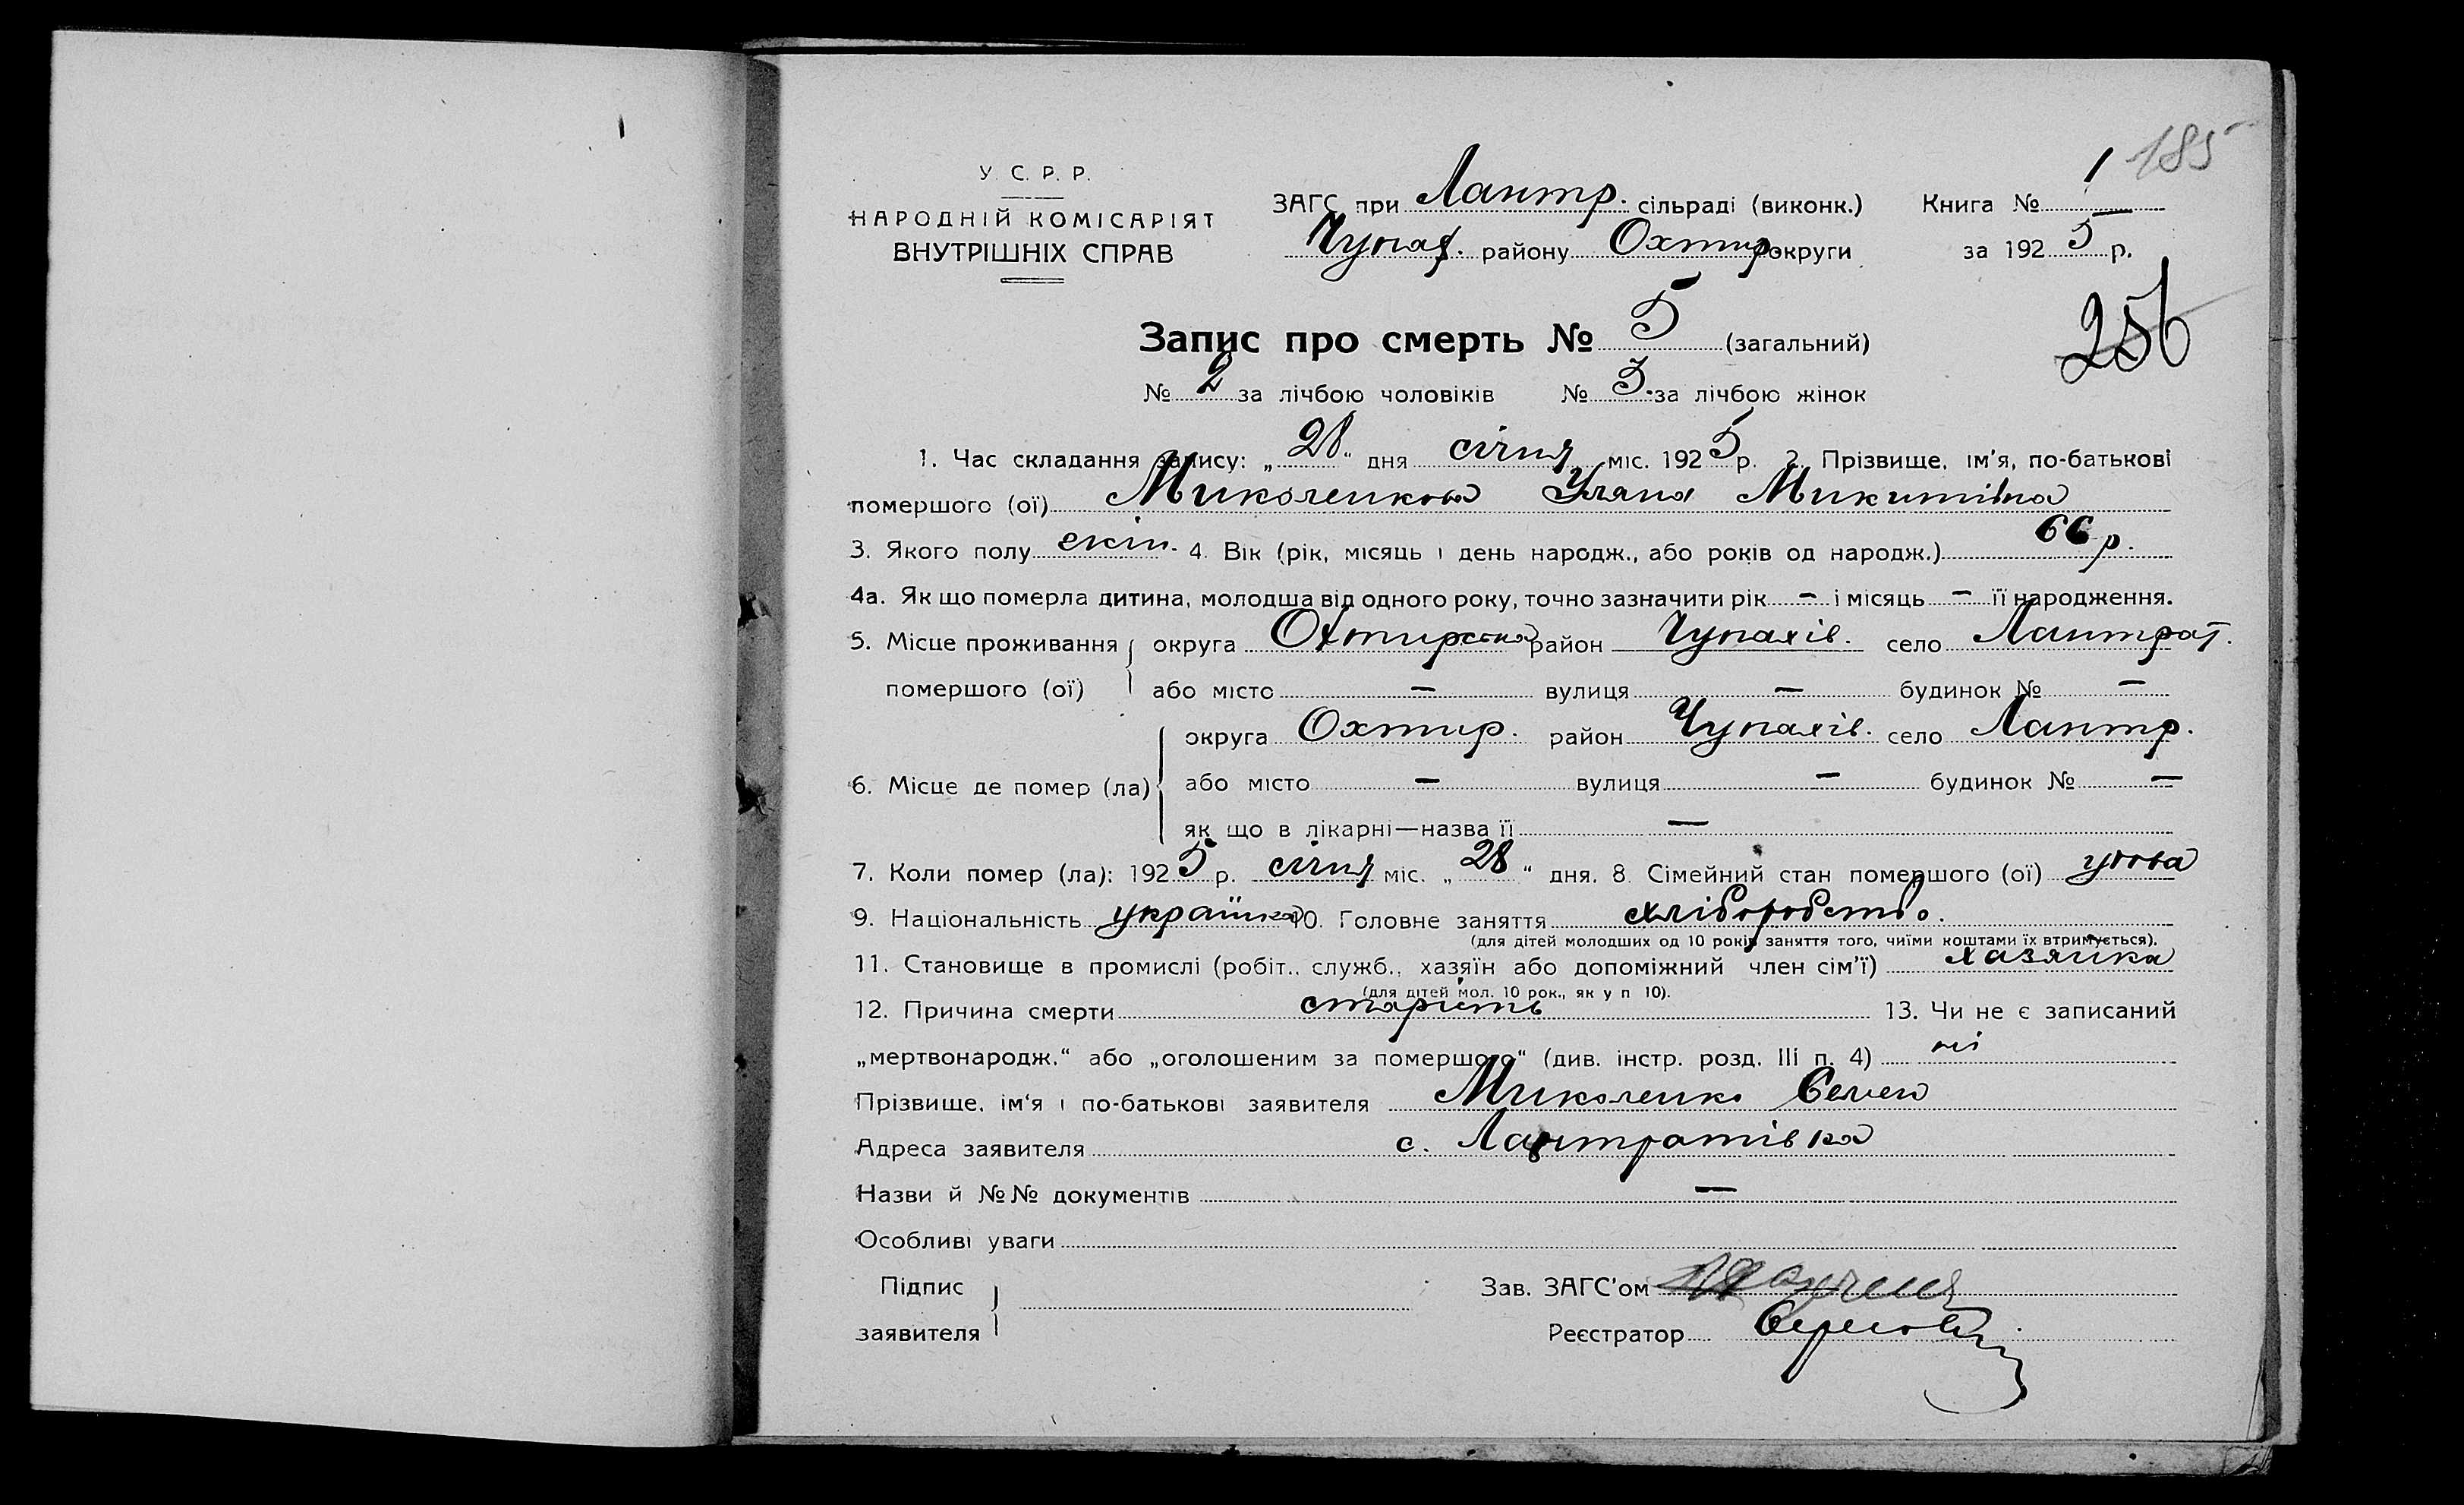 185
У. С. Р. Р.
НАРОДНІЙ КОМІСАРІЯТ
ВНУТРІШНІХ СПРАВ
ЗАГС при Лантр. сільраді (виконк.)
Чупах. району Охтир округи
Книга № 1
за 1925 р.
256
Запис про смерть № 5 (загальний)
№ 2 за лічбою чоловіків № 3. за лічбою жінок
1. Час складання запису: „28“ дня січня міс. 1925 р. 2. Прізвище, ім'я, по-батькові
помершого (ої) Миколенкова Уляна Микитівна
3. Якого полу жін. 4. Вік (рік, місяць і день народж., або років од народж.) 66 р.
4а. Як що померла дитина, молодша від одного року, точно зазначити рік — і місяць — її народження.
5. Місце проживання помершого (ої) округа Охтирська район Чупахів. село Лантрат.
або місто — вулиця — будинок № —
6. Місце де помер (ла) округа Охтир. район Чупахів. село Лантр.
або місто — вулиця — будинок № —
як що в лікарні—назва її —
7. Коли помер (ла): 1925 р. січня міс. „28“ дня. 8. Сімейний стан помершого (ої) удова
9. Національність українка 10. Головне заняття хліборобство.
(для дітей молодших од 10 років заняття того, чиїми коштами їх втримується).
11. Становище в промислі (робіт., служб., хазяїн або допоміжний член сім'ї) хазяйка
(для дітей мол. 10 рок., як у п 10).
12. Причина смерти старість 13. Чи не є записаний
„мертвонародж.“ або „оголошеним за помершого“ (див. інстр. розд. III п. 4) ні
Прізвище, ім'я і по-батькові заявителя Миколенко Семен
Адреса заявителя с. Лантратівка
Назви й №№ документів —
Особливі уваги
Підпис заявителя
Зав. ЗАГС'ом
Реєстратор